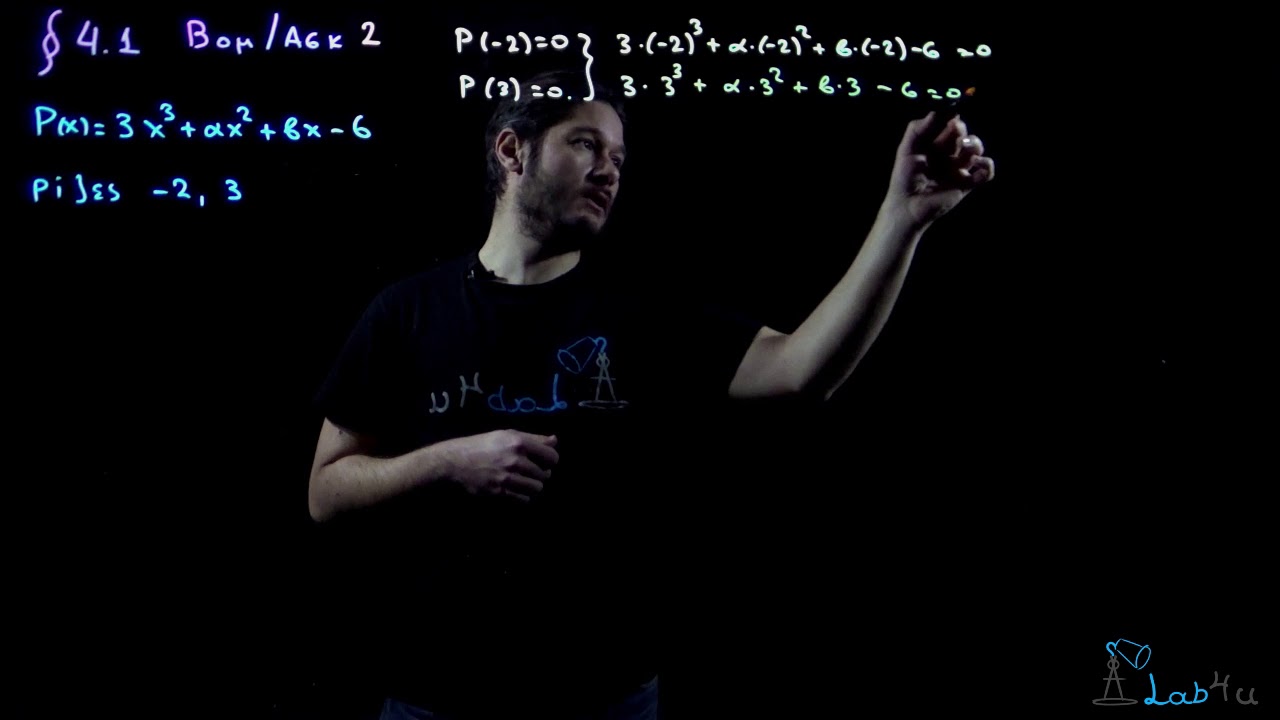 § 4.1 Βοη/Ασκ 2
P(x) = 3x³ + αx² + βx - 6
Ρίζες -2, 3
P(-2)=0 } 3·(-2)³ + α·(-2)² + β·(-2) - 6 = 0
P(3)=0. } 3·3³ + α·3² + β·3 - 6 = 0
Lab4u
Lab4u